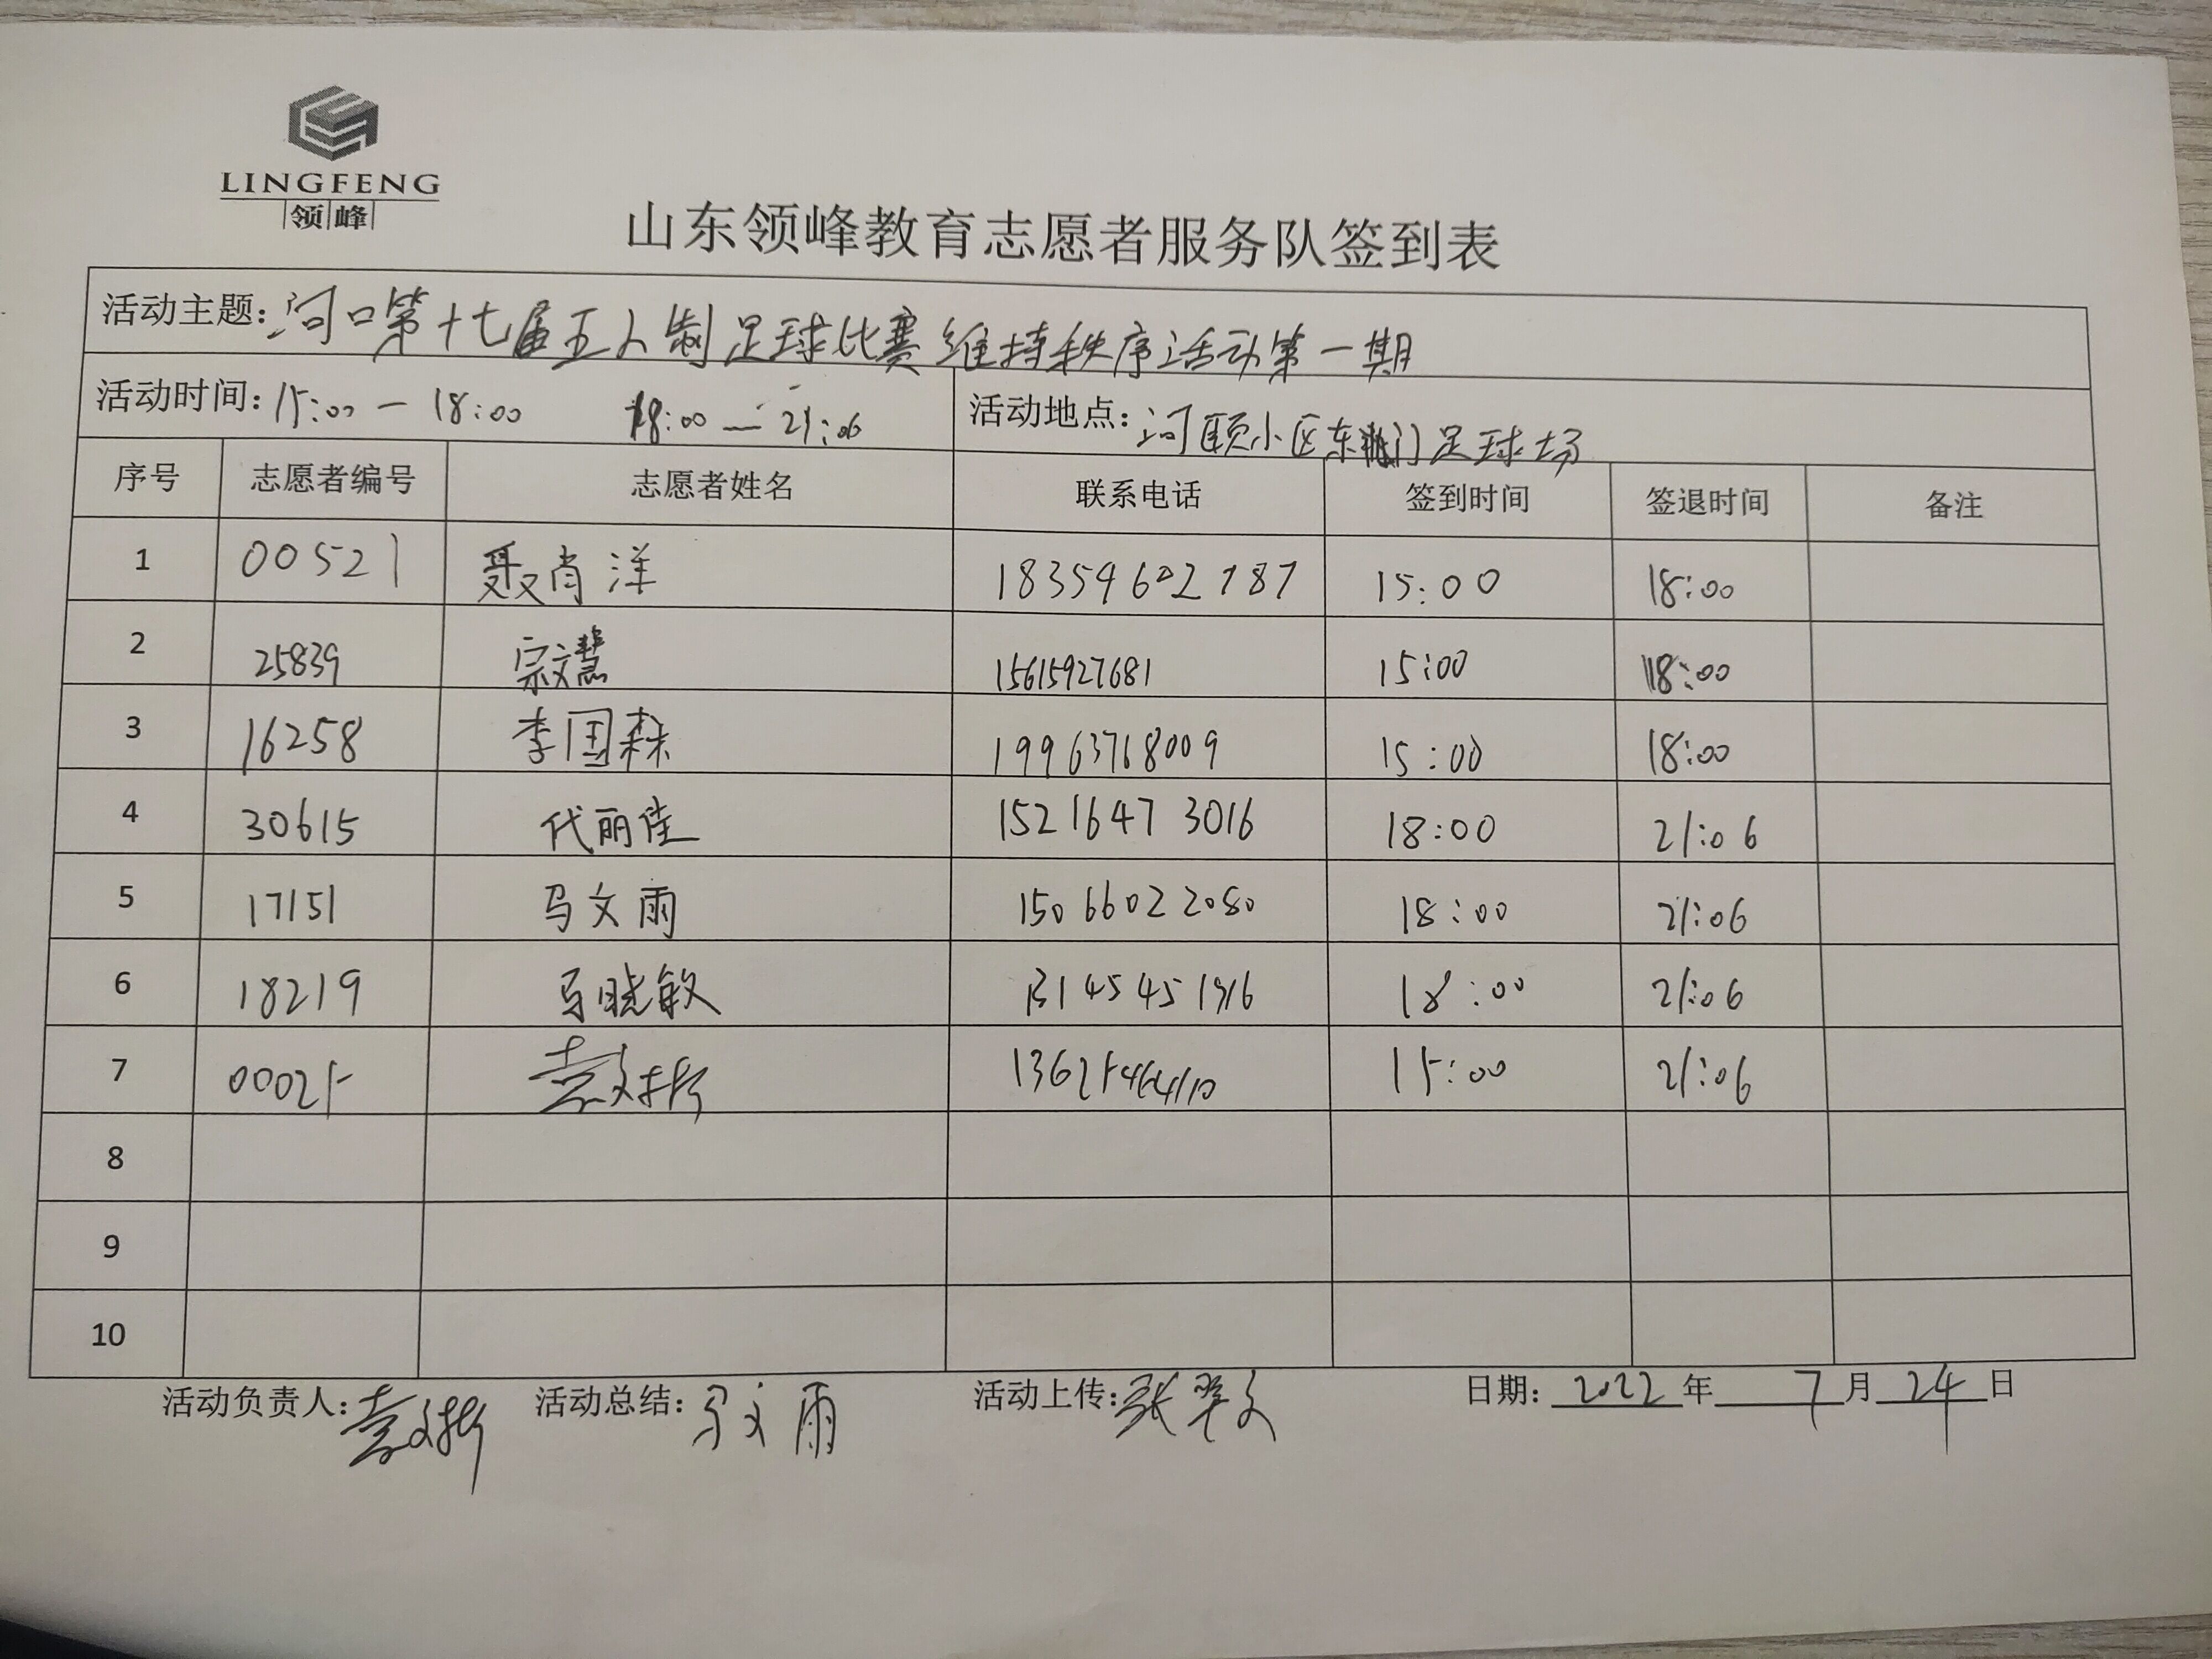 LINGFENG
领峰
山东领峰教育志愿者服务队签到表
活动主题: 河口第十七届五人制足球比赛维持秩序活动第一期
活动时间: 15:00 — 18:00 18:00 — 21:06 活动地点: 河颐小区东门足球场
序号 志愿者编号 志愿者姓名 联系电话 签到时间 签退时间 备注
1 00521 聂肖洋 18359602787 15:00 18:00
2 25839 宗文慧 15615927681 15:00 18:00
3 16258 李国森 19963768009 15:00 18:00
4 30615 代丽佳 15216473016 18:00 21:06
5 17151 马文雨 15066022080 18:00 21:06
6 18219 马晓敏 18:00 21:06
7 00025 15:00 21:06
8
9
10
活动负责人: 活动总结: 马文雨 活动上传: 张翠文 日期: 2022 年 7 月 24 日